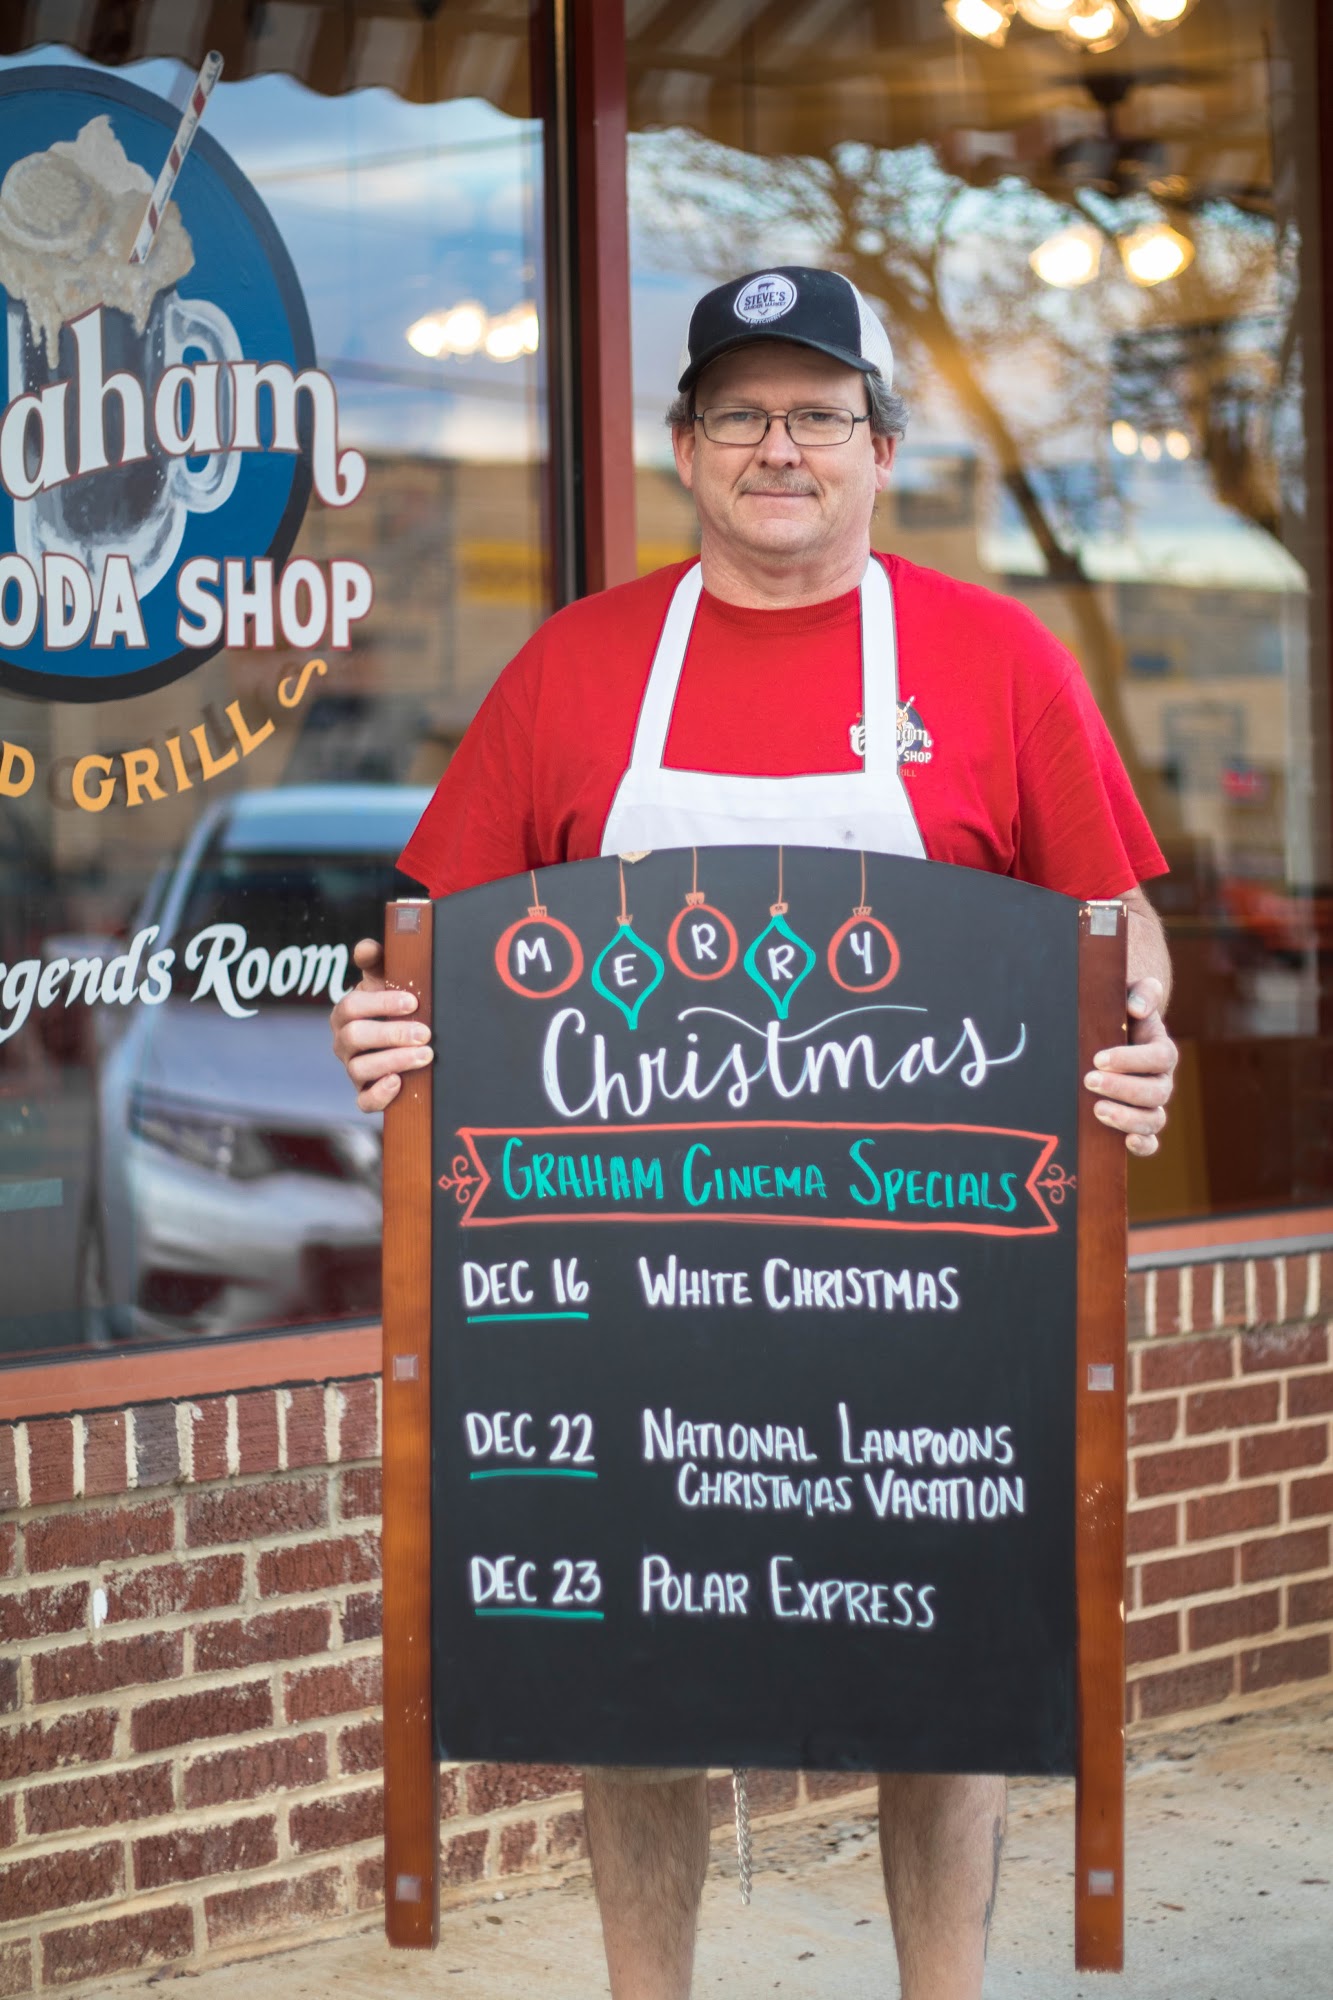 STEVE'S
aham
ODA SHOP
D GRILL
gends Room
SHOP
MERRY
Christmas
GRAHAM CINEMA SPECIALS
DEC 16 WHITE CHRISTMAS
DEC 22 NATIONAL LAMPOONS
CHRISTMAS VACATION
DEC 23 POLAR EXPRESS